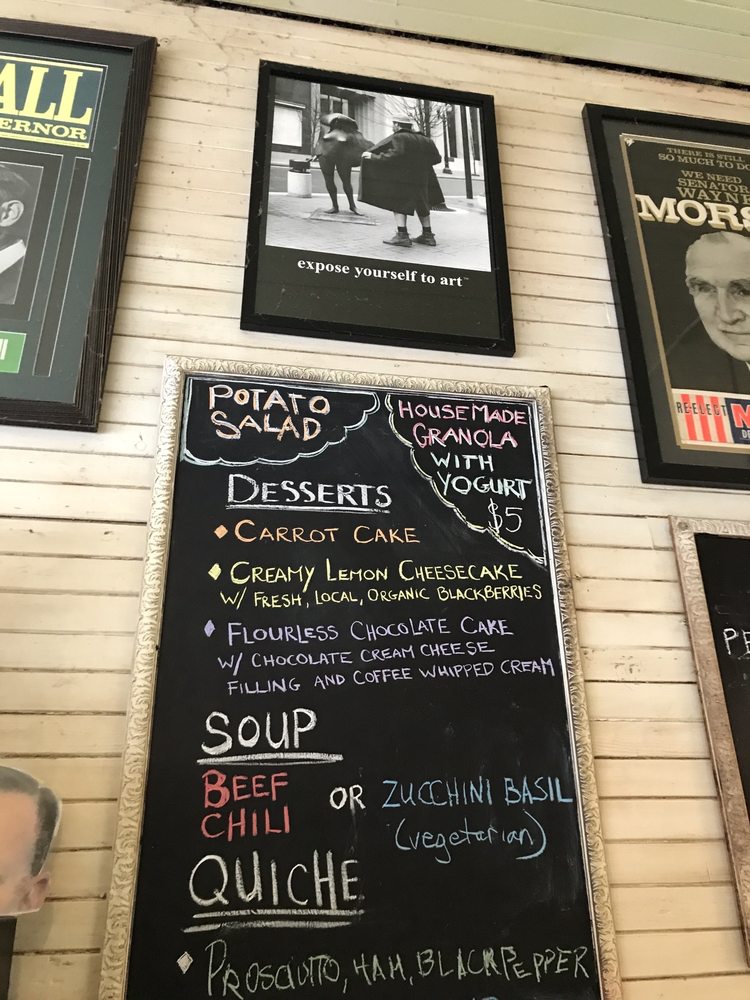 ALL
ERNOR
expose yourself to art™
THERE IS STILL
SO MUCH TO DO
WE NEED
SENATOR
WAYNE
MORS
RE-ELECT
POTATO
SALAD
HOUSEMADE
GRANOLA
WITH
YOGURT
$5
DESSERTS
CARROT CAKE
CREAMY LEMON CHEESECAKE
W/ FRESH, LOCAL, ORGANIC BLACKBERRIES
FLOURLESS CHOCOLATE CAKE
W/ CHOCOLATE CREAM CHEESE
FILLING AND COFFEE WHIPPED CREAM
SOUP
BEEF
CHILI
OR
ZUCCHINI BASIL
(vegetarian)
QUICHE
PROSCIUTTO, HAM, BLACK PEPPER
PE